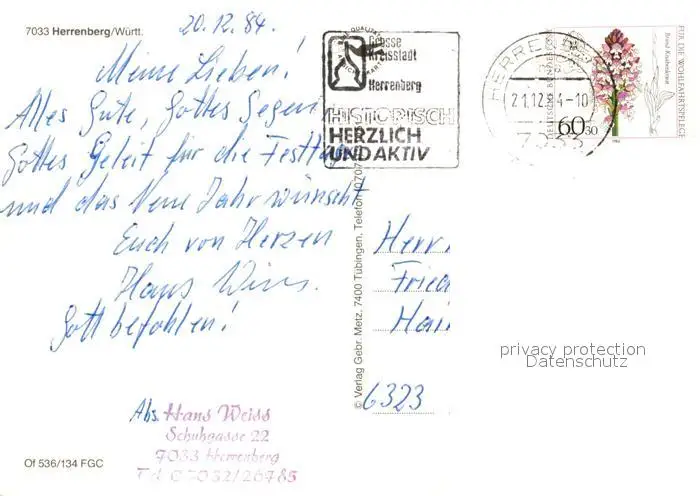 7033 Herrenberg/Württ.
20.12.84.
Meine Lieben!
Alles Gute, Gottes Segen
Gottes Geleit für die Festtage
und das Neue Jahr wünscht
Euch von Herzen
Hans Weiss.
Gott befohlen!
Abs. Hans Weiss
Schuhgasse 22
7033 Herrenberg
Tel. 07032/26785
Of 536/134 FGC
© Verlag Gebr. Metz, 7400 Tübingen, Telefon (0707
Grosse
Kreisstadt
Herrenberg
HISTORISCH
HERZLICH
UND AKTIV
HERRENB
21.12.84-10
7033
DEUTSCHE BUNDES
60+30
FÜR DIE WOHLFAHRTSPFLEGE
Brand-Knabenkraut
Herrn
Fried
Hai
6323
privacy protection
Datenschutz